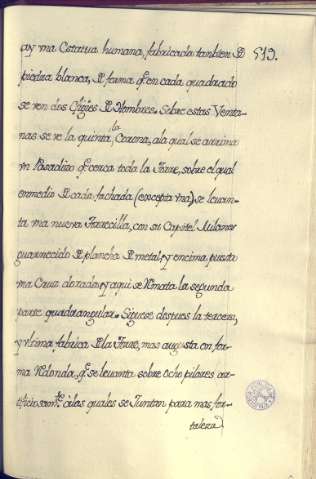 ay vna Estatua humana, fabricada tambien D 513.
piedra blanca, D forma q̃ en cada quadrado
se ven dos Efigies D Hombres. Sobre estas Venta-
nas se ve la quinta la Corona, ala qual se arrima
vn Pasadizo q̃ cerca toda la Torre, sobre el qual
enmedio D cada fachada (excepta vna) se levan-
ta vna nueva Torrecilla, con su Capitel
guarnecido D plancha D metal, y encima puesta
vna Cruz dorada, y aqui se Remata la segunda
parte quadrangular. Siguese despues la tercera,
y vltima fabrica D la Torre, mas angosta en for-
ma Redonda, q̃ se levanta sobre Ocho pilares ar-
tificiosamte. a las quales se Juntan para mas for-
taleza